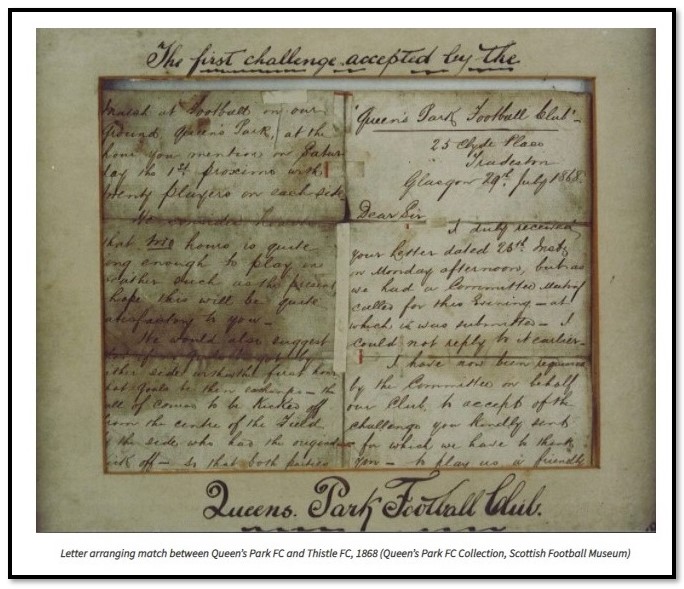 The first challenge accepted by the
'Queen's Park Football Club'-
25 Clyde Place
Tradeston
Glasgow 29th. July 1868.
Dear Sir
I duly received
your letter dated 25th. Inst.
on Monday afternoon, but as
we had a Committee Meeting
called for this Evening - at
which it was submitted - I
could not reply to it earlier-
I have now been requested
by the Committee on behalf
our Club, to accept of the
challenge you kindly sent
- for which we have to thank
you - to play us a friendly
Match at Football on our
Ground, Queen's Park, at the
hour you mention on Satur
day the 1st proximo with
twenty players on each side.
We consider however
that two hours is quite
long enough to play in
weather such as the present
hope this will be quite
satisfactory to you-
We would also suggest
got by
either side within the first hour
that goals be then - the
ball of course to be kicked off
from the centre of the Field
by the side who had the original
kick off - so that both parties
Queens. Park Football Club.
Letter arranging match between Queen's Park FC and Thistle FC, 1868 (Queen's Park FC Collection, Scottish Football Museum)